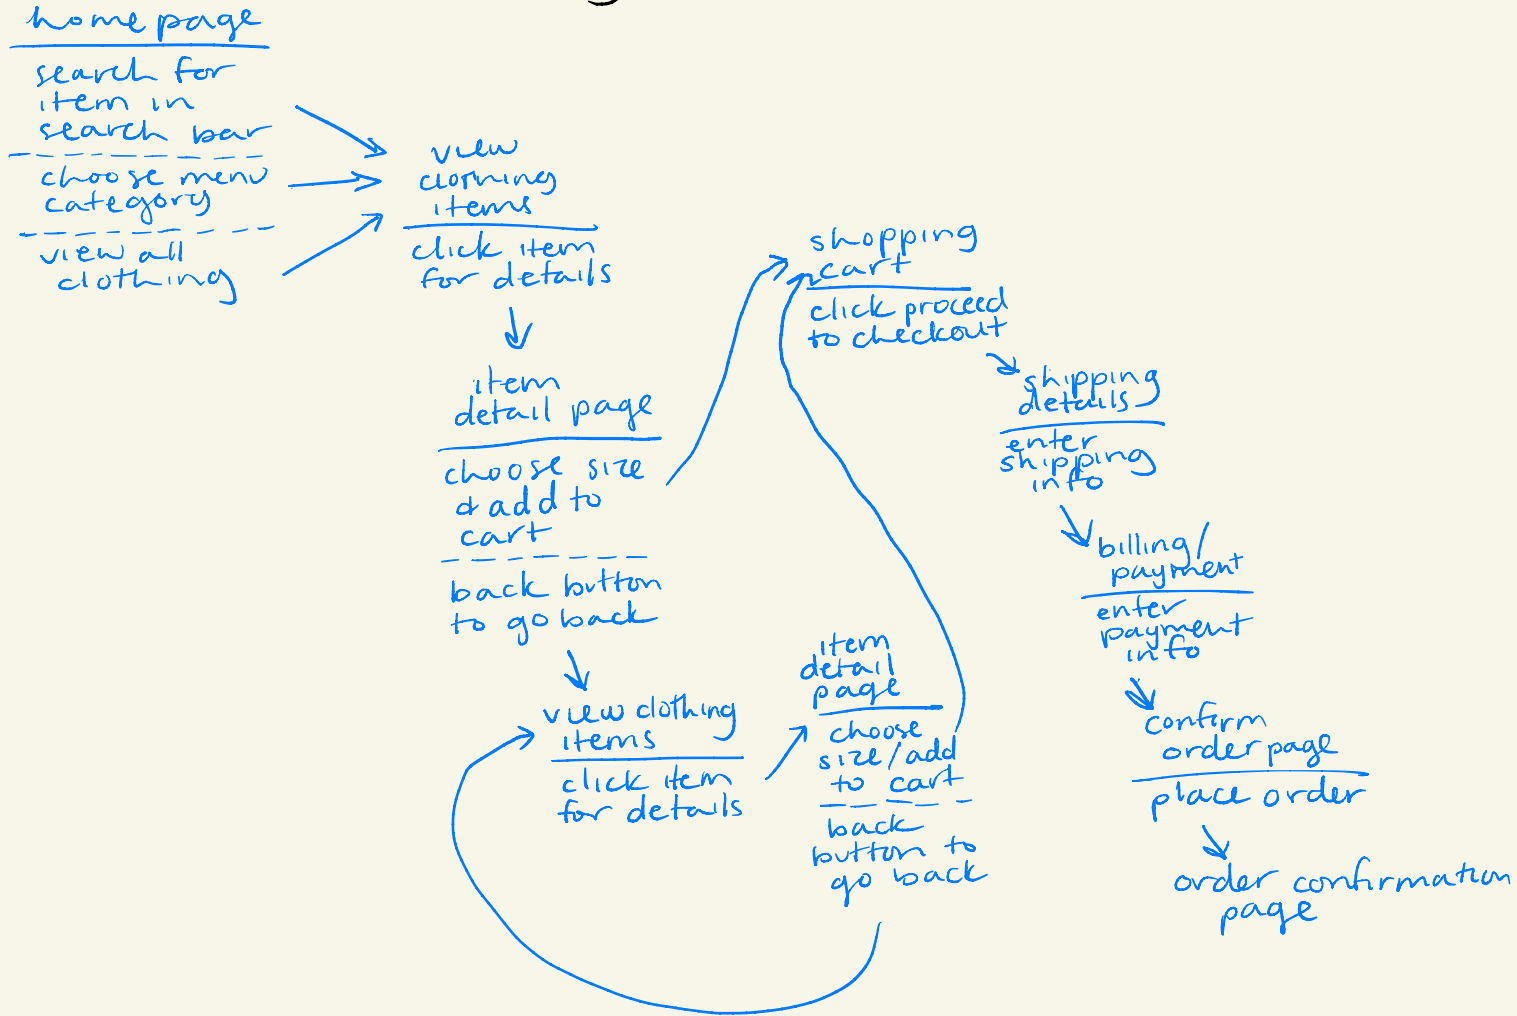 homepage
search for
item in
search bar
choose menu
category
view all
clothing
view
clothing
items
click item
for details
item
detail page
choose size
& add to
cart
back button
to go back
view clothing
items
click item
for details
item
detail
page
choose
size/add
to cart
back
button to
go back
shopping
cart
click proceed
to checkout
shipping
details
enter
shipping
info
billing/
payment
enter
payment
info
confirm
order page
place order
order confirmation
page